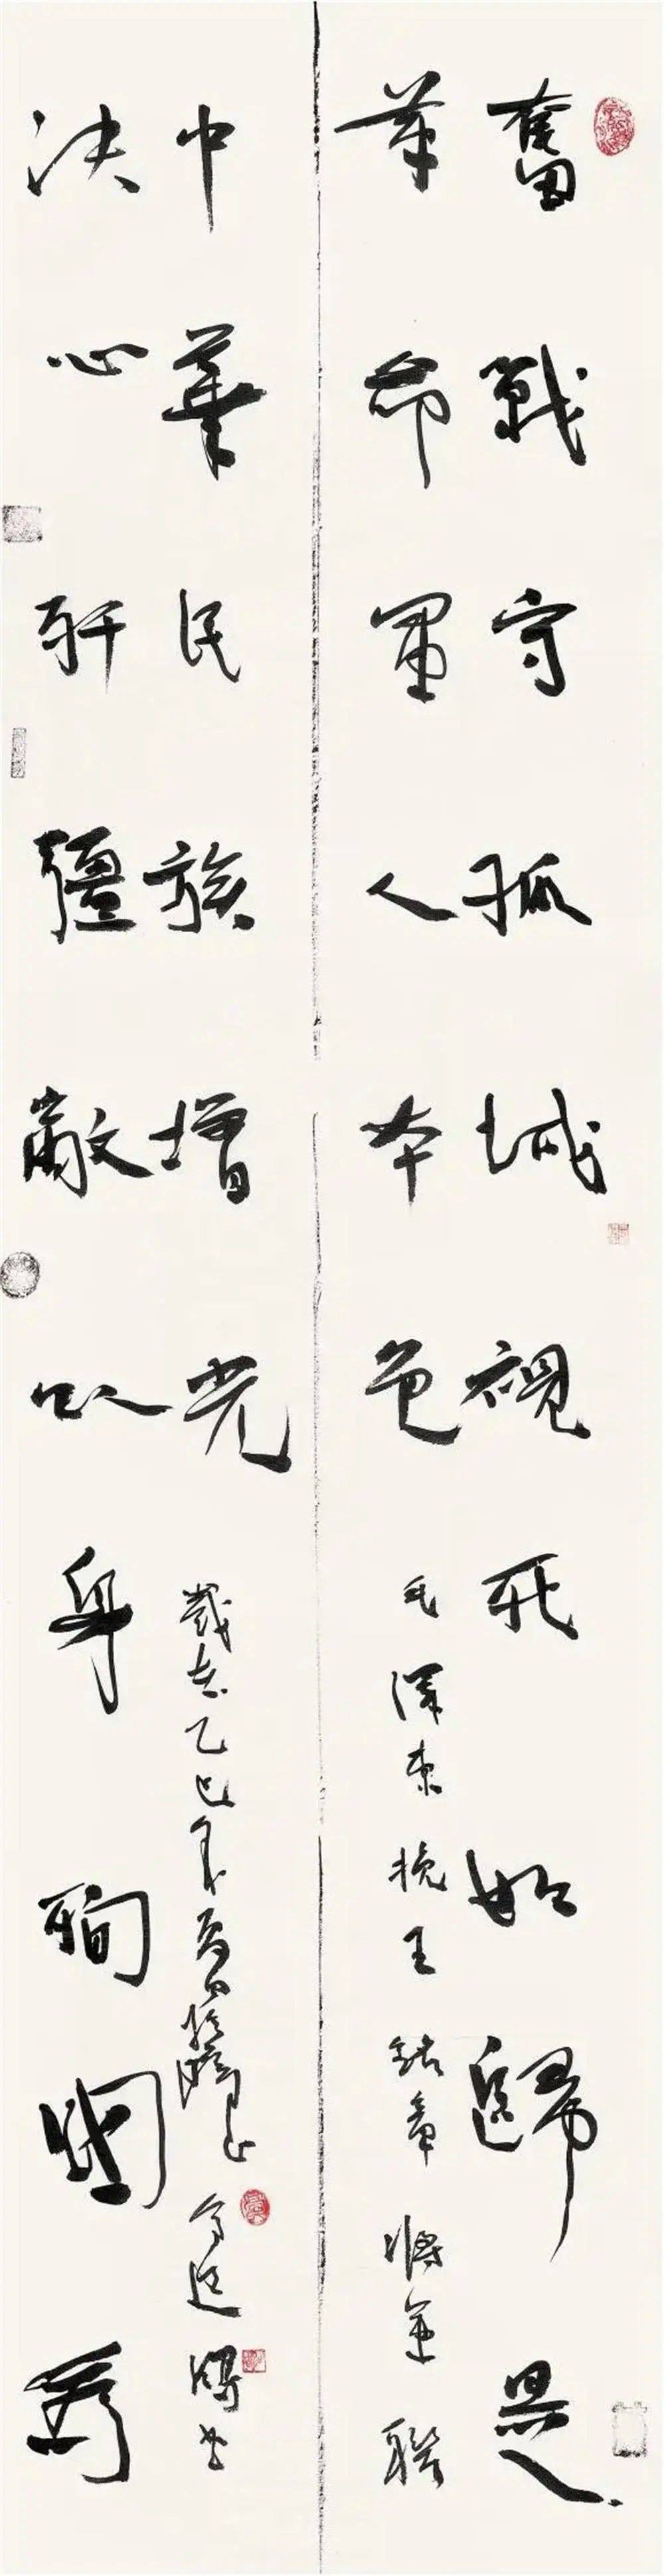 奮戰守孤城視死如歸是
革命軍人本色
毛澤東挽王銘章將軍聯
決心歼彊敵以身殉國為
中華民族增光
歲在乙巳年夏日
書